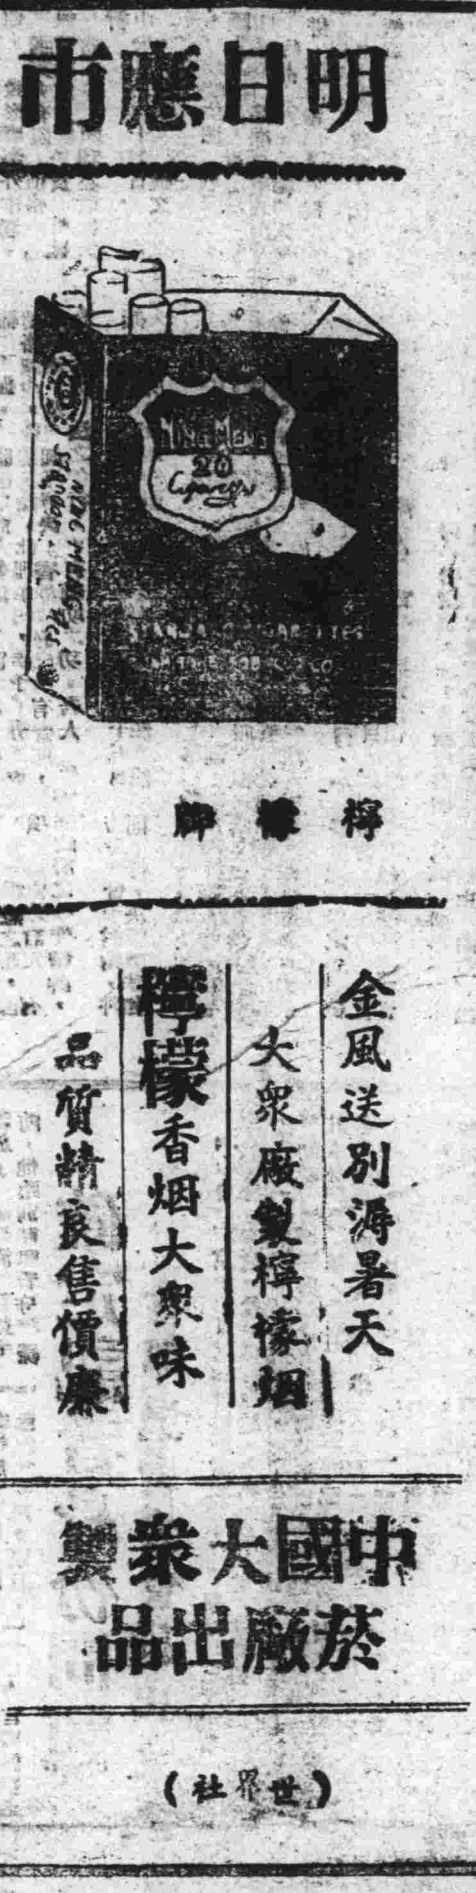 明日應市
NING MENG
20
Cigarettes
NING MENG
檸檬牌
金風送別溽暑天
大衆廠製檸檬烟
檸檬香烟大衆味
品質精良售價廉
中國大衆製
菸廠出品
(世界社)